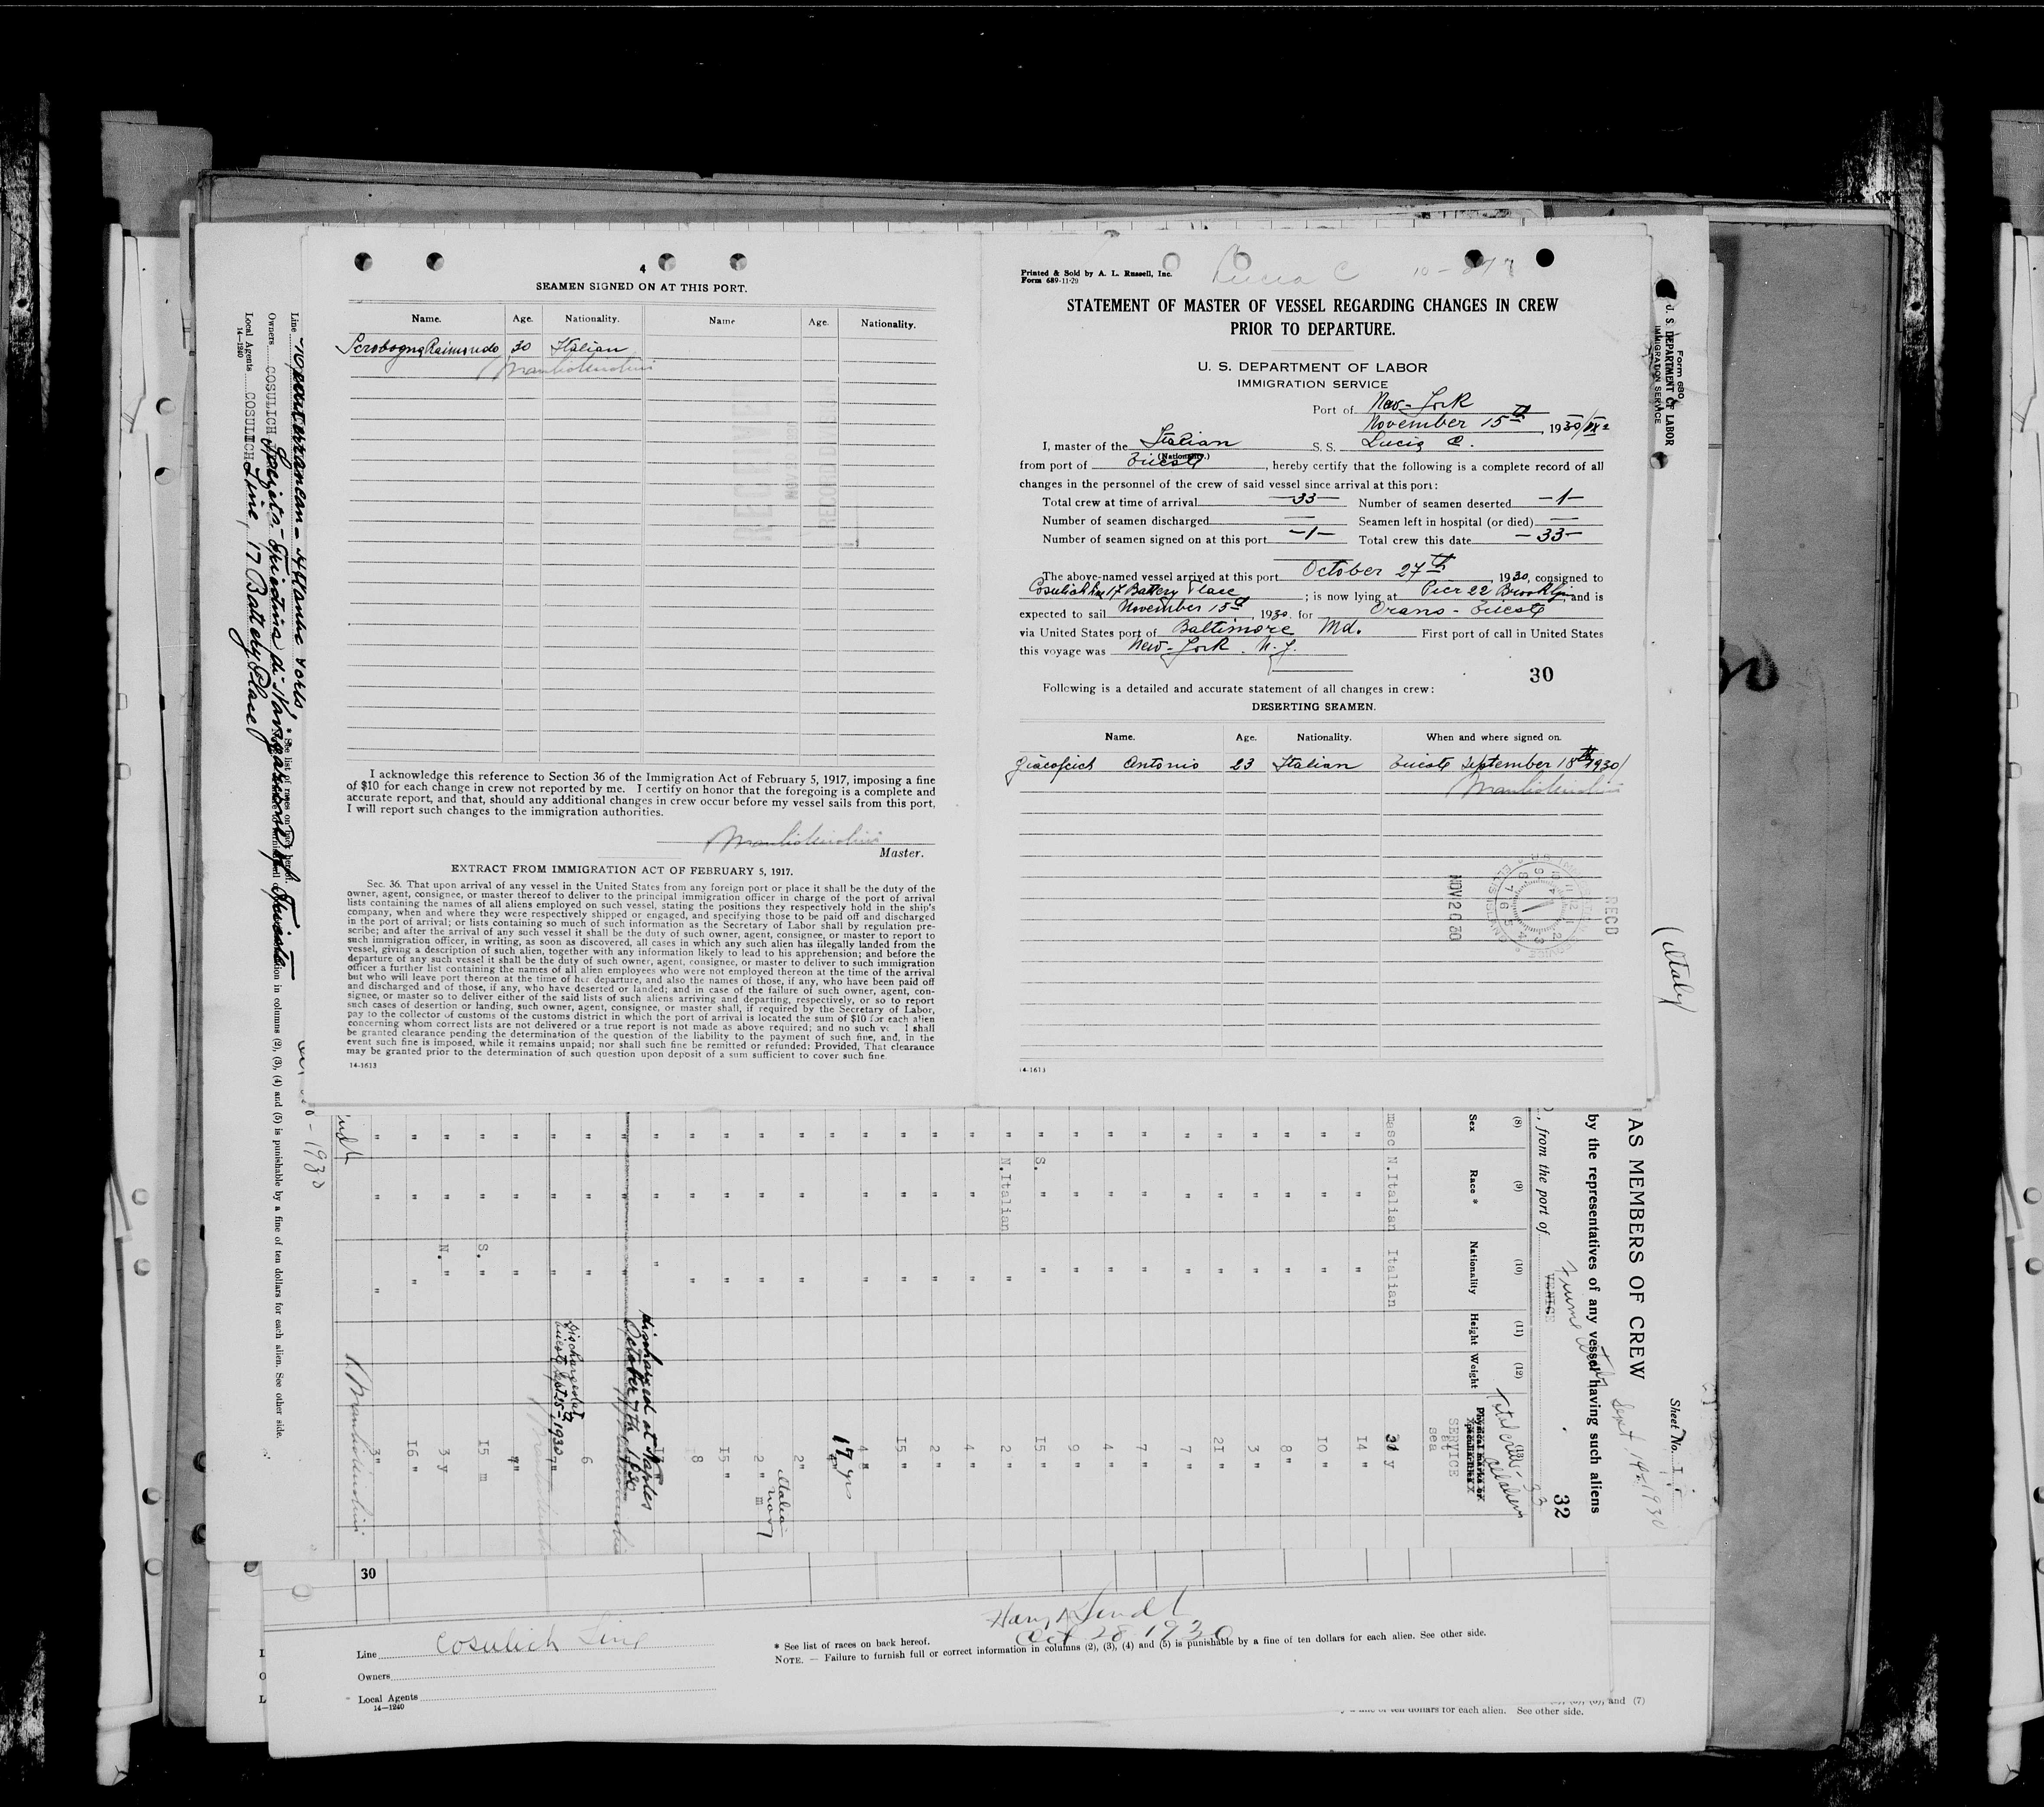 4
SEAMEN SIGNED ON AT THIS PORT.
Name. Age. Nationality. Name Age. Nationality.
Scrobogna Raimondo 30 Italian
I acknowledge this reference to Section 36 of the Immigration Act of February 5, 1917, imposing a fine
of $10 for each change in crew not reported by me. I certify on honor that the foregoing is a complete and
accurate report, and that, should any additional changes in crew occur before my vessel sails from this port,
I will report such changes to the immigration authorities.
Master.
EXTRACT FROM IMMIGRATION ACT OF FEBRUARY 5, 1917.
Sec. 36. That upon arrival of any vessel in the United States from any foreign port or place it shall be the duty of the
owner, agent, consignee, or master thereof to deliver to the principal immigration officer in charge of the port of arrival
lists containing the names of all aliens employed on such vessel, stating the positions they respectively hold in the ship's
company, when and where they were respectively shipped or engaged, and specifying those to be paid off and discharged
in the port of arrival; or lists containing so much of such information as the Secretary of Labor shall by regulation pre-
scribe; and after the arrival of any such vessel it shall be the duty of such owner, agent, consignee, or master to report to
such immigration officer, in writing, as soon as discovered, all cases in which any such alien has illegally landed from the
vessel, giving a description of such alien, together with any information likely to lead to his apprehension; and before the
departure of any such vessel it shall be the duty of such owner, agent, consignee, or master to deliver to such immigration
officer a further list containing the names of all alien employees who were not employed thereon at the time of the arrival
but who will leave port thereon at the time of her departure, and also the names of those, if any, who have been paid off
and discharged and of those, if any, who have deserted or landed; and in case of the failure of such owner, agent, con-
signee, or master so to deliver either of the said lists of such aliens arriving and departing, respectively, or so to report
such cases of desertion or landing, such owner, agent, consignee, or master shall, if required by the Secretary of Labor,
pay to the collector of customs of the customs district in which the port of arrival is located the sum of $10 for each alien
concerning whom correct lists are not delivered or a true report is not made as above required; and no such ve l shall
be granted clearance pending the determination of the question of the liability to the payment of such fine, and, in the
event such fine is imposed, while it remains unpaid; nor shall such fine be remitted or refunded: Provided, That clearance
may be granted prior to the determination of such question upon deposit of a sum sufficient to cover such fine
14-1613
Printed & Sold by A. L. Russell, Inc.
Form 689-11-29
Lucia C
STATEMENT OF MASTER OF VESSEL REGARDING CHANGES IN CREW
PRIOR TO DEPARTURE.
U. S. DEPARTMENT OF LABOR
IMMIGRATION SERVICE
Port of New-York
November 15th, 1930
I, master of the Italian S. S. Lucia C.
(Nationality.)
from port of Trieste, hereby certify that the following is a complete record of all
changes in the personnel of the crew of said vessel since arrival at this port:
Total crew at time of arrival —33— Number of seamen deserted —1—
Number of seamen discharged — Seamen left in hospital (or died) —
Number of seamen signed on at this port —1— Total crew this date —33—
The above-named vessel arrived at this port October 27th, 1930, consigned to
Cosulich Line 17 Battery Place; is now lying at Pier 22 Brooklyn and is
expected to sail November 15th, 1930. for Orano - Trieste
via United States port of Baltimore Md. First port of call in United States
this voyage was New-York. N.Y.
30
Following is a detailed and accurate statement of all changes in crew:
DESERTING SEAMEN.
Name. Age. Nationality. When and where signed on.
Giacopcich Antonio 23 Italian Trieste September 18th 1930
NOV 20 30
RECD
14-1613
Form 680
U. S. DEPARTMENT OF LABOR
IMMIGRATION SERVICE
(Italy)
Line Mediterranean - Atlantic
Owners COSULICH Società Triestina di Navigazione Trieste
Local Agents COSULICH Line, 17 Battery Place
14-1240
* See list of races on back hereof.
in columns (2), (3), (4) and (5) is punishable by a fine of ten dollars for each alien. See other side.
Sheet No. 1
Sept 1930
AS MEMBERS OF CREW
by the representatives of any vessel having such aliens
, from the port of Fiume
VENICE
32
(8) (9) (10) (11) (12) (13)
Sex Race * Nationality Height Weight
SERVICE
at
sea
masc N.Italian Italian 31 y
14 "
10 "
8 "
3 "
21 "
7 "
7 "
4 "
9 "
S. " 15 "
N.Italian " 2 "
4 "
2 "
15 "
4 "
17 yrs
2 "
2 " m
15 "
8
Discharged at Naples
October 7th 1930
6
Discharged at
Trieste Sept 15-1930
S. " 15 m
N. " 3 y
16 "
3 "
30
Line Cosulich Line
Owners
Local Agents
14—1240
Oct 28 1930
* See list of races on back hereof.
NOTE. — Failure to furnish full or correct information in columns (2), (3), (4) and (5) is punishable by a fine of ten dollars for each alien. See other side.
and (7)
dollars for each alien. See other side.